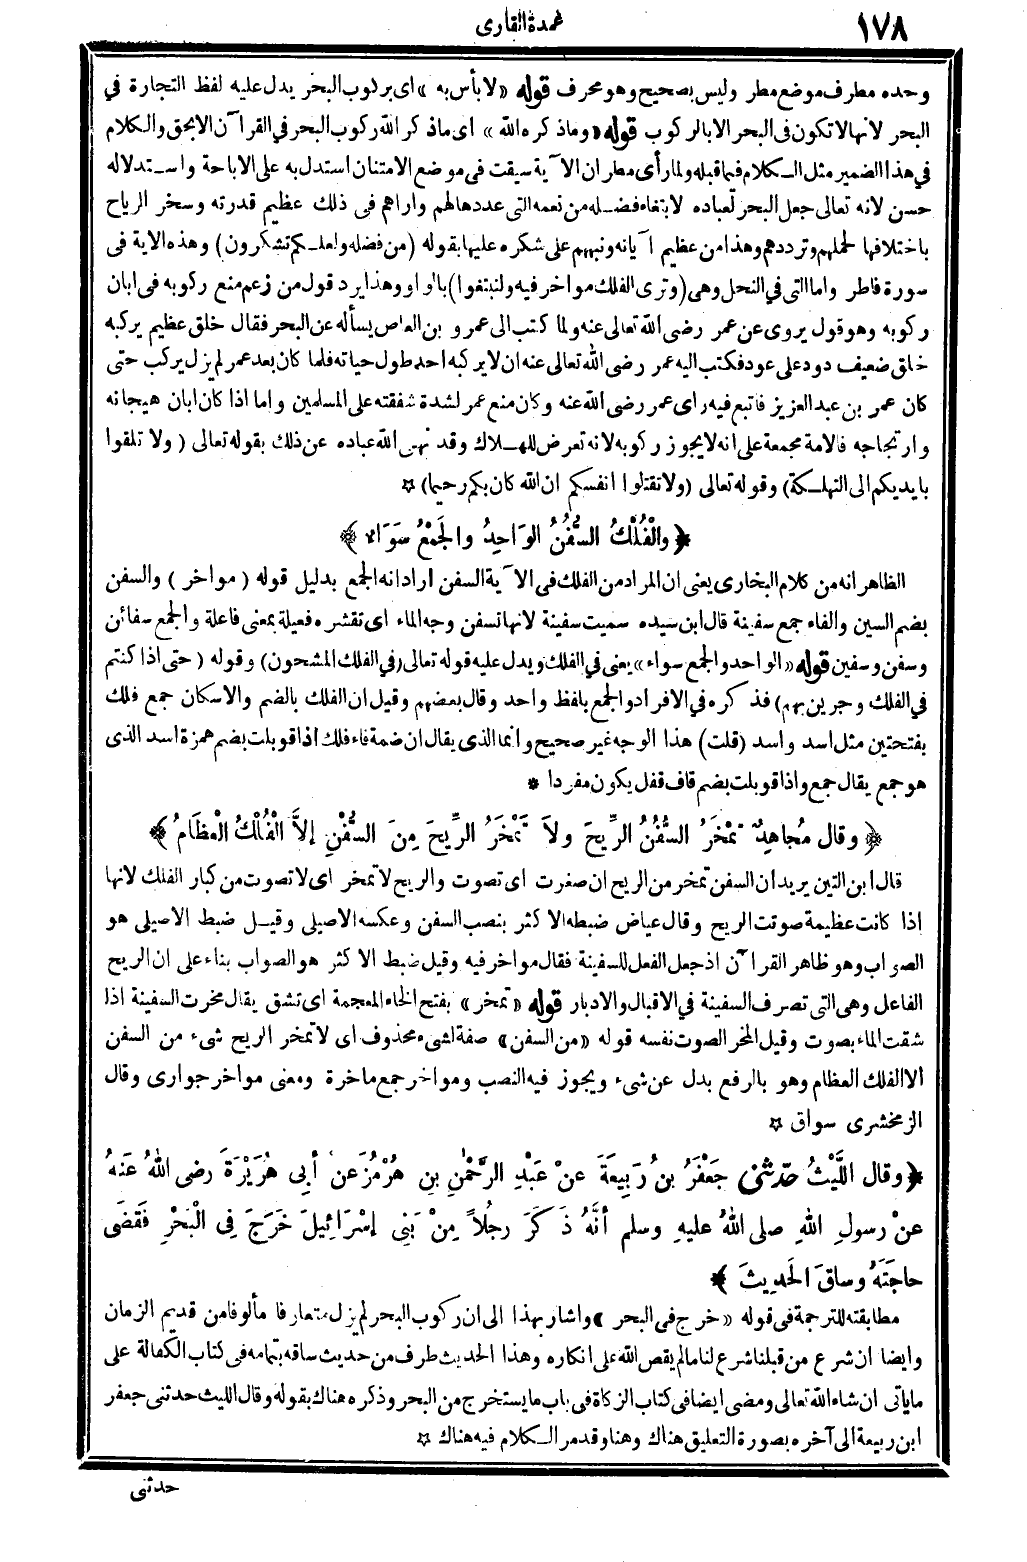 ١٧٨
عمدة القارى
وحده مطرف موضع مطر وليس بصحيح وهو محرف قوله «لا بأس به» اى بركوب البحر يدل عليه لفظ التجارة في
البحر لانها لا تكون فى البحر الا بالركوب قوله «وما ذكره الله» اى ما ذكر الله ركوب البحر في القرآن الا بحق والكلام
في هذا الضمير مثل الكلام فيما قبله ولما رأى مطر ان الآية سيقت فى موضع الامتنان استدل به على الاباحة واستدلاله
حسن لانه تعالى جعل البحر لعباده لابتغاء فضله من نعمه التى عددها لهم واراهم فى ذلك عظيم قدرته وسخر الرياح
باختلافها لحملهم وترددهم وهذا من عظيم آياته ونبههم على شكره عليها بقوله (من فضله ولعلكم تشكرون) وهذه الاية فى
سورة فاطر واما التى في النحل وهى (وترى الفلك مواخر فيه ولتبتغوا) بالواو وهذا يرد قول من زعم منع ركوبه فى ابان
ركوبه وهو قول يروى عن عمر رضى الله تعالى عنه ولما كتب الى عمرو بن العاص يسأله عن البحر فقال خلق عظيم يركبه
خلق ضعيف دود على عود فكتب اليه عمر رضى الله تعالى عنه ان لا يركبه احد طول حياته فلما كان بعد عمر لم يزل يركب حتى
كان عمر بن عبد العزيز فاتبع فيه راى عمر رضى الله عنه وكان منع عمر لشدة شفقته على المسلمين واما اذا كان ابان هيجانه
وارتجاجه فالامة مجمعة على انه لا يجوز ركوبه لانه تعرض للهلاك وقد نهى الله عباده عن ذلك بقوله تعالى (ولا تلقوا
بايديكم الى التهلكة) وقوله تعالى (ولا تقتلوا انفسكم ان الله كان بكم رحيما) ☆
﴿والْفُلْكُ السُّفُنُ الوَاحِدُ والجَمْعُ سَوَاء﴾
الظاهر انه من كلام البخارى يعنى ان المراد من الفلك فى الآية السفن اراد انه الجمع بدليل قوله (مواخر) والسفن
بضم السين والفاء جمع سفينة قال ابن سيده سميت سفينة لانها تسفن وجه الماء اى تقشره فعيلة بمعنى فاعلة والجمع سفائن
وسفن وسفين قوله «الواحد والجمع سواء» يعنى في الفلك ويدل عليه قوله تعالى (في الفلك المشحون) وقوله (حتى اذا كنتم
في الفلك وجرين بهم) فذكره في الافراد والجمع بلفظ واحد وقال بعضهم وقيل ان الفلك بالضم والاسكان جمع فلك
بفتحتين مثل اسد واسد (قلت) هذا الوجه غير صحيح وانما الذى يقال ان ضمة فاء فلك اذا قوبلت بضم همزة اسد الذى
هو جمع يقال جمع واذا قوبلت بضم قاف قفل يكون مفردا *
﴿وقال مُجاهِدٌ تَمْخَرُ السُّفُنُ الرِّيحَ ولاَ تَمْخَرُ الرِّيحَ مِنَ السُّفُنِ إلاَّ الْفُلْكُ الْعظَامُ﴾
قال ابن التين يريد ان السفن تمخر من الريح ان صغرت اى تصوت والريح لا تمخر اى لا تصوت من كبار الفلك لانها
اذا كانت عظيمة صوتت الريح وقال عياض ضبطه الاكثر بنصب السفن وعكسه الاصيلى وقيل ضبط الاصيلى هو
الصواب وهو ظاهر القرآن اذ جعل الفعل للسفينة فقال مواخر فيه وقيل ضبط الاكثر هو الصواب بناء على ان الريح
الفاعل وهى التى تصرف السفينة في الاقبال والادبار قوله «تمخر» بفتح الخاء المعجمة اى تشق يقال مخرت السفينة اذا
شقت الماء بصوت وقيل المخر الصوت نفسه قوله «من السفن» صفة لشىء محذوف اى لا تمخر الريح شىء من السفن
الا الفلك العظام وهو بالرفع بدل عن شىء ويجوز فيه النصب ومواخر جمع ماخرة ومعنى مواخر جوارى وقال
الزمخشرى سواق ☆
﴿وقال اللَّيْثُ حدّثنى جَعْفَرُ بنُ رَبِيعَةَ عنْ عَبْدِ الرَّحْمٰنِ بنِ هُرْمُزَ عنْ أبِى هُرَيْرَةَ رضى اللهُ عَنهُ
عنْ رسولِ اللهِ صلى اللهُ عليهِ وسلم أنَّهُ ذَكَرَ رجُلاً مِنْ بَنِى إسْرَائِيلَ خَرَجَ فِى الْبَحْرِ فَقَضَى
حاجَتَهُ وساقَ الحَدِيثَ﴾
مطابقته للترجمة فى قوله «خرج فى البحر» واشار بهذا الى ان ركوب البحر لم يزل متعارفا مألوفا من قديم الزمان
وايضا ان شرع من قبلنا شرع لنا ما لم يقص الله على انكاره وهذا الحديث طرف من حديث ساقه بتمامه فى كتاب الكفالة على
ما ياتى ان شاء الله تعالى ومضى ايضا فى كتاب الزكاة فى باب ما يستخرج من البحر وذكره هناك بقوله وقال الليث حدثنى جعفر
ابن ربيعة الى آخره بصورة التعليق هناك وهنا وقد مر الكلام فيه هناك ☆
حدثنى